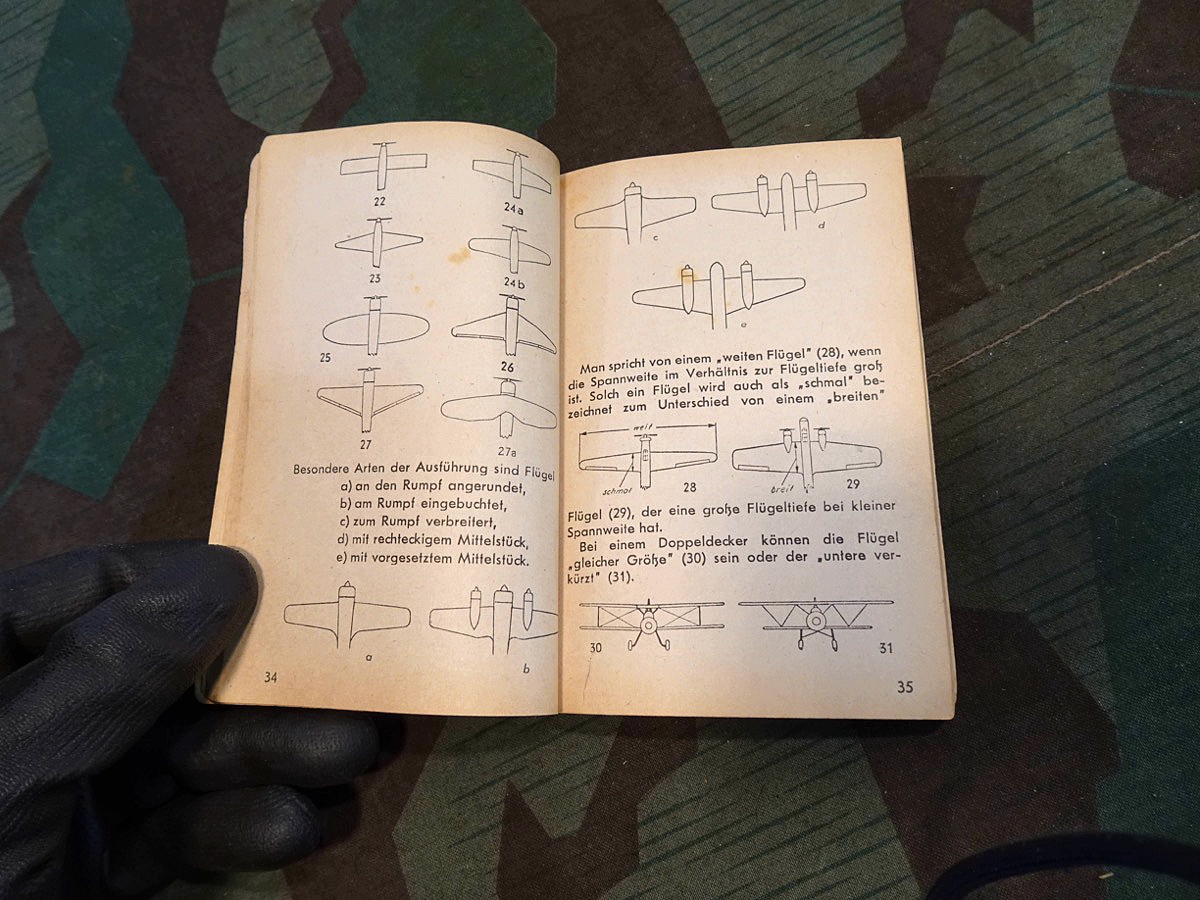 22
24a
23
24b
25
26
27
27a
Besondere Arten der Ausführung sind Flügel
a) an den Rumpf angerundet,
b) am Rumpf eingebuchtet,
c) zum Rumpf verbreitert,
d) mit rechteckigem Mittelstück,
e) mit vorgesetztem Mittelstück.
a
b
34
c
d
e
Man spricht von einem „weiten Flügel" (28), wenn
die Spannweite im Verhältnis zur Flügeltiefe groß
ist. Solch ein Flügel wird auch als „schmal" be-
zeichnet zum Unterschied von einem „breiten"
weit
schmal
28
breit
29
Flügel (29), der eine große Flügeltiefe bei kleiner
Spannweite hat.
Bei einem Doppeldecker können die Flügel
„gleicher Größe" (30) sein oder der „untere ver-
kürzt" (31).
30
31
35